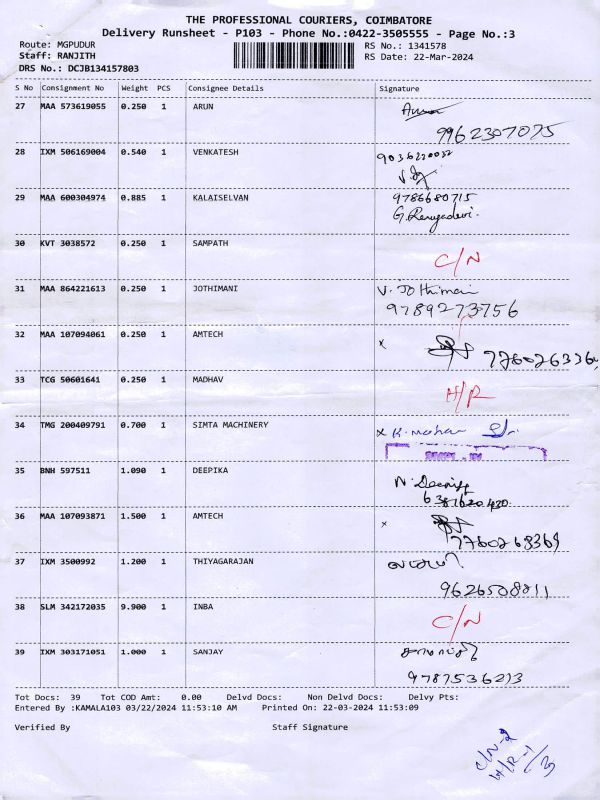 THE PROFESSIONAL COURIERS, COIMBATORE
Delivery Runsheet - P103 - Phone No.:0422-3505555 - Page No.:3
Route: MGPUDUR RS No.: 1341578
Staff: RANJITH RS Date: 22-Mar-2024
DRS No.: DCJB134157803
S No Consignment No Weight PCS Consignee Details Signature
27 MAA 573619055 0.250 1 ARUN
9962307075
28 IXM 506169004 0.540 1 VENKATESH
29 MAA 600304974 0.885 1 KALAISELVAN 9786680715
G. Renugadevi.
30 KVT 3038572 0.250 1 SAMPATH
C/N
31 MAA 864221613 0.250 1 JOTHIMANI V. JOthimani
9789273756
32 MAA 107094061 0.250 1 AMTECH x
33 TCG 50601641 0.250 1 MADHAV
H/R
34 TMG 200409791 0.700 1 SIMTA MACHINERY x K. mohan
35 BNH 597511 1.090 1 DEEPIKA
N. Deenipp
6381620420
36 MAA 107093871 1.500 1 AMTECH x
37 IXM 3500992 1.200 1 THIYAGARAJAN
9626508811
38 SLM 342172035 9.900 1 INBA
C/N
39 IXM 303171051 1.000 1 SANJAY
9787536213
Tot Docs: 39 Tot COD Amt: 0.00 Delvd Docs: Non Delvd Docs: Delvy Pts:
Entered By :KAMALA103 03/22/2024 11:53:10 AM Printed On: 22-03-2024 11:53:09
Verified By Staff Signature
C/N-2
H/R-1